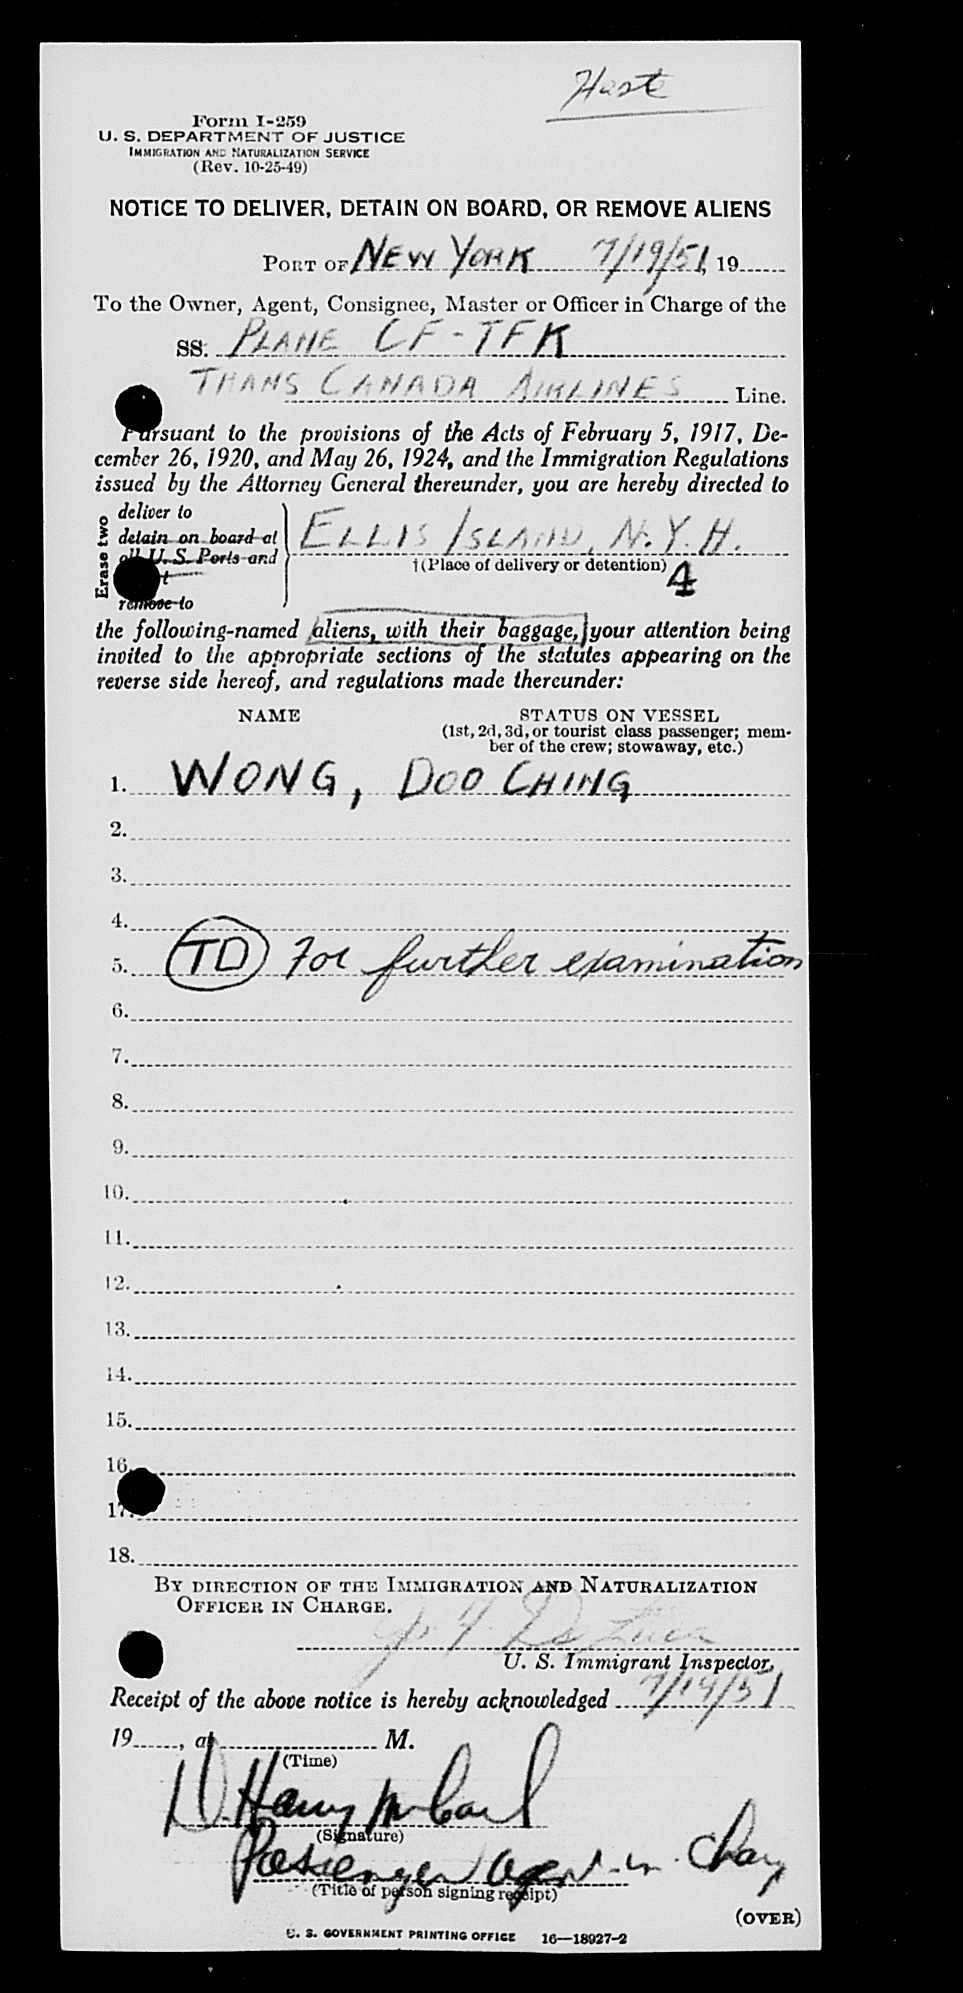 Haste
Form I-259
U. S. DEPARTMENT OF JUSTICE
IMMIGRATION AND NATURALIZATION SERVICE
(Rev. 10-25-49)
NOTICE TO DELIVER, DETAIN ON BOARD, OR REMOVE ALIENS
PORT OF NEW YORK 7/19/51, 19
To the Owner, Agent, Consignee, Master or Officer in Charge of the
SS. PLANE CF-TFK
TRANS CANADA AIRLINES Line.
Pursuant to the provisions of the Acts of February 5, 1917, De-
cember 26, 1920, and May 26, 1924, and the Immigration Regulations
issued by the Attorney General thereunder, you are hereby directed to
Erase two
deliver to
detain on board at
all U. S. Ports and
remove to
ELLIS ISLAND, N.Y.H.
†(Place of delivery or detention) 4
the following-named aliens, with their baggage, your attention being
invited to the appropriate sections of the statutes appearing on the
reverse side hereof, and regulations made thereunder:
NAME STATUS ON VESSEL
(1st, 2d, 3d, or tourist class passenger; mem-
ber of the crew; stowaway, etc.)
1. WONG, DOO CHING
2.
3.
4.
5. TD For further examination
6.
7.
8.
9.
10.
11.
12.
13.
14.
15.
16.
17.
18.
BY DIRECTION OF THE IMMIGRATION AND NATURALIZATION
OFFICER IN CHARGE.
De Luca
U. S. Immigrant Inspector,
Receipt of the above notice is hereby acknowledged 7/19/51
19, at M.
(Time)
Harry
(Signature)
Passenger agent in charg
(Title of person signing receipt)
(OVER)
U. S. GOVERNMENT PRINTING OFFICE 16—18927-2